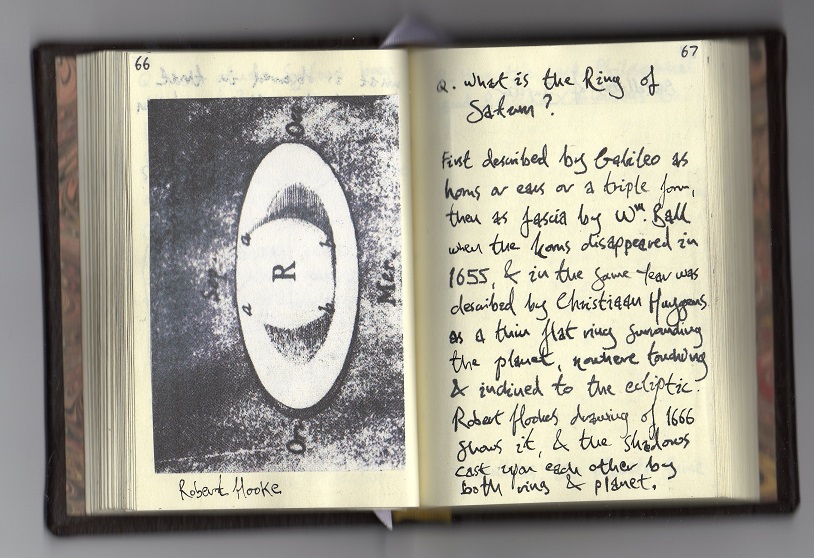 66
Occ
a
b
R
Sep
Mer
a
b
Ori
Robert Hooke
67
Q. What is the Ring of
Saturn?
First described by Galileo as
horns or ears or a triple form,
then as fascia by Wm. Ball
when the horns disappeared in
1655, & in the same year was
described by Christiaan Huygens
as a thin flat ring surrounding
the planet, nowhere touching
& inclined to the ecliptic.
Robert Hookes drawing of 1666
shows it, & the shadows
cast upon each other by
both ring & planet.